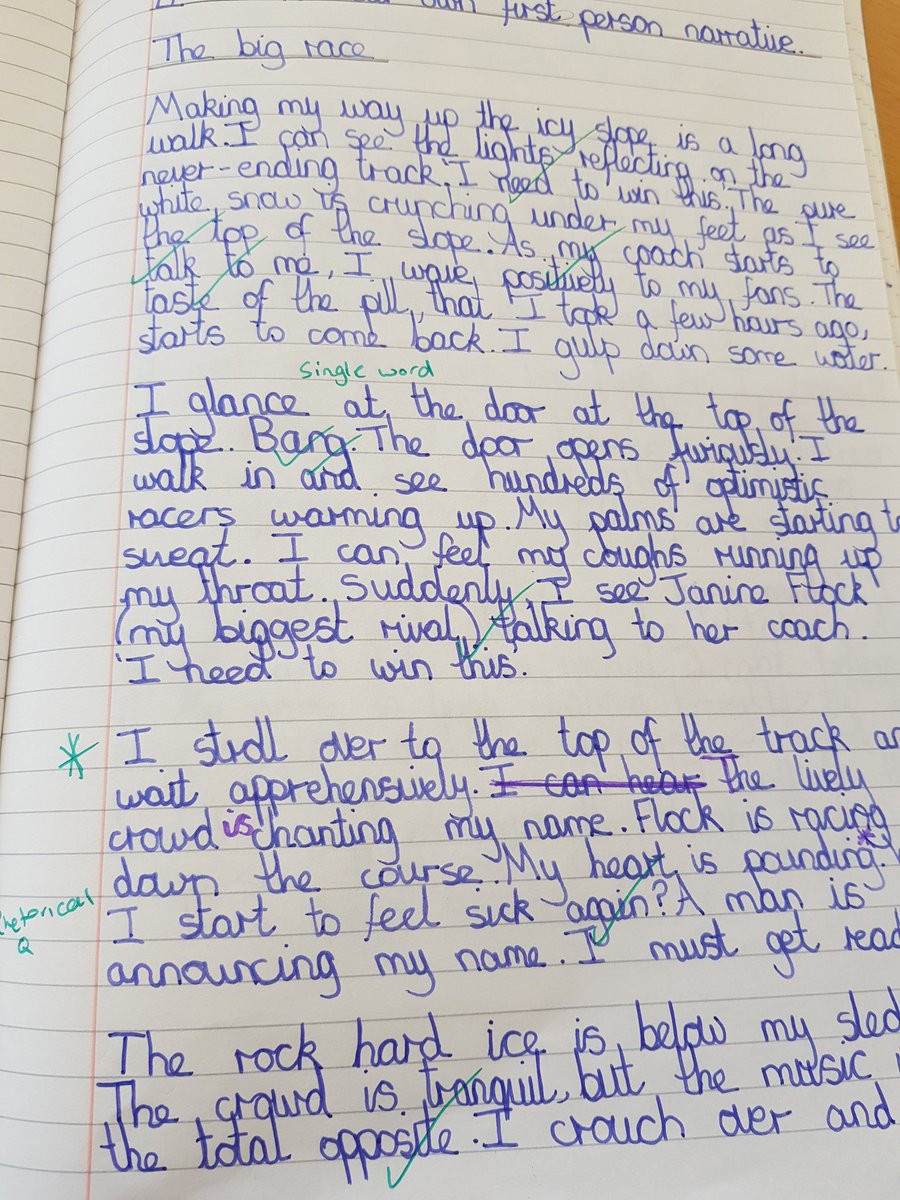 own first person narrative.
The big race
Making my way up the icy slope is a long
walk. I can see the lights reflecting on the
never-ending track. I need to win this. The pure
white snow is crunching under my feet as I see
the top of the slope. As my coach starts to
talk to me, I wave positively to my fans. The
taste of the pill, that I took a few hours ago,
starts to come back. I gulp down some water.
Single word
I glance at the door at the top of the
slope. Bang. The door opens furiously. I
walk in and see hundreds of optimistic
racers warming up. My palms are starting to
sweat. I can feel my coughs running up
my throat. Suddenly, I see Janine Flock
(my biggest rival,) talking to her coach.
'I need to win this.
* I stroll over to the top of the track
wait apprehensively. I can hear The lively
crowd is chanting my name. Flock is racing
down the course. My heart is pounding. *
I start to feel sick again? A man is
Q
announcing my name. I must get
The rock hard ice is below my sled
The crowd is tranquil, but the music
the total opposite. I crouch over and